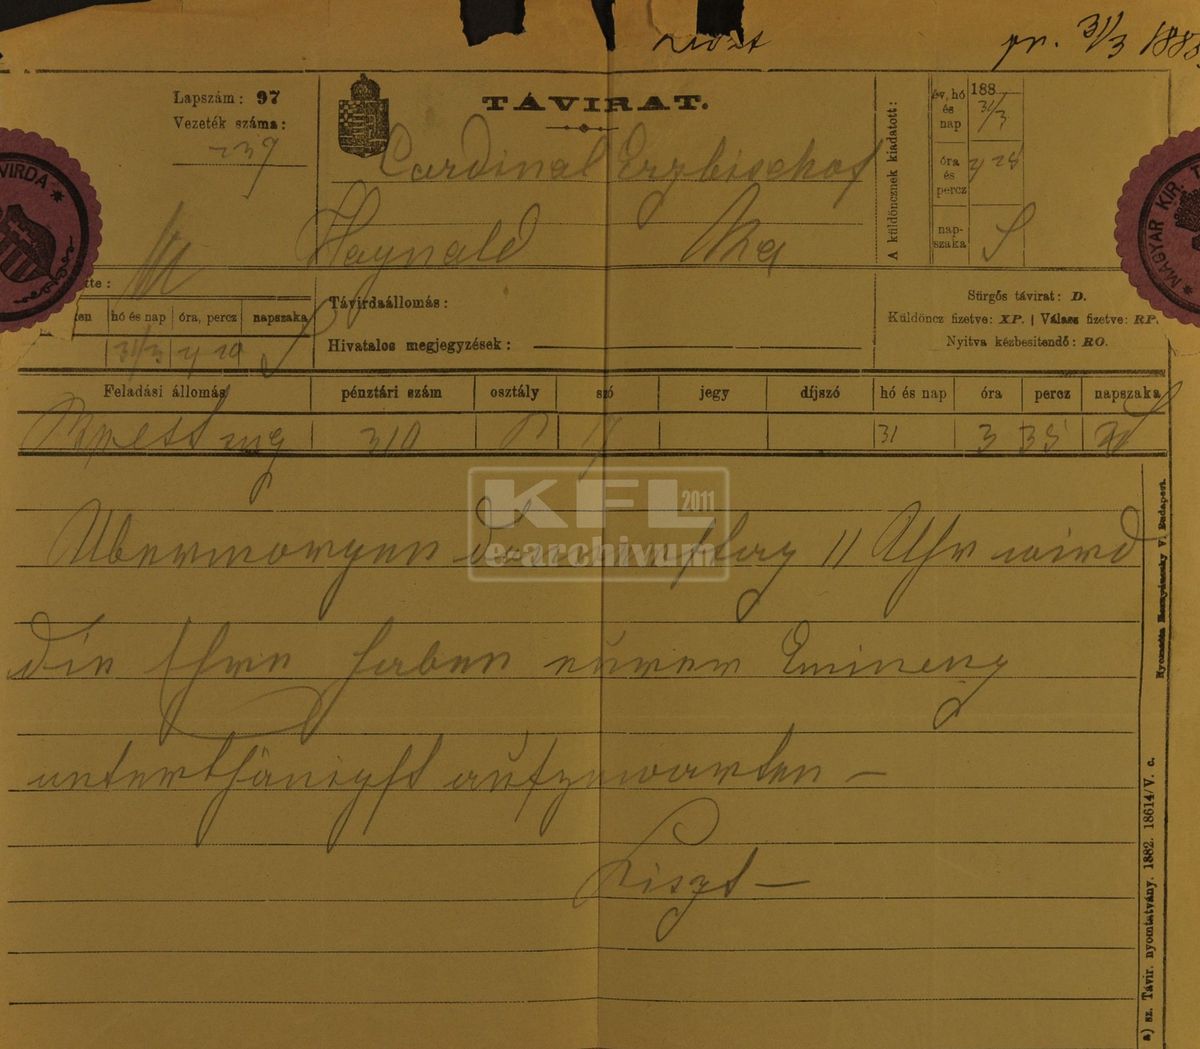 Liszt pr. 31/3 1885
Lapszám: 97
Vezeték száma:
239
TÁVIRAT.
Cardinal Erzbischof
Haynald
A küldöncznek kiadatott:
év, hó és nap 188 31/3
óra és percz 4 28
nap-szaka S
VIRDA
MAGYAR KIR. T
tte:
Távirdaállomás:
Hivatalos megjegyzések:
Sürgős távirat: D.
Küldöncz fizetve: XP. | Válasz fizetve: RP.
Nyitva kézbesitendő: RO.
ten hó és nap óra, percz napszaka
31/3 4 20
Feladási állomás pénztári szám osztály szó jegy díjszó hó és nap óra percz napszaka
Bpest 310 17 31 3 35
KFL 2011
e-archivum
Übermorgen Donnerstag 11 Uhr wird
die Ehre haben eurer Eminenz
unterthänigst aufzuwarten –
Liszt –
Nyomatta Hornyánszky V. Budapest.
a) sz. Távir. nyomtatvány. 1882. 18614/V. c.